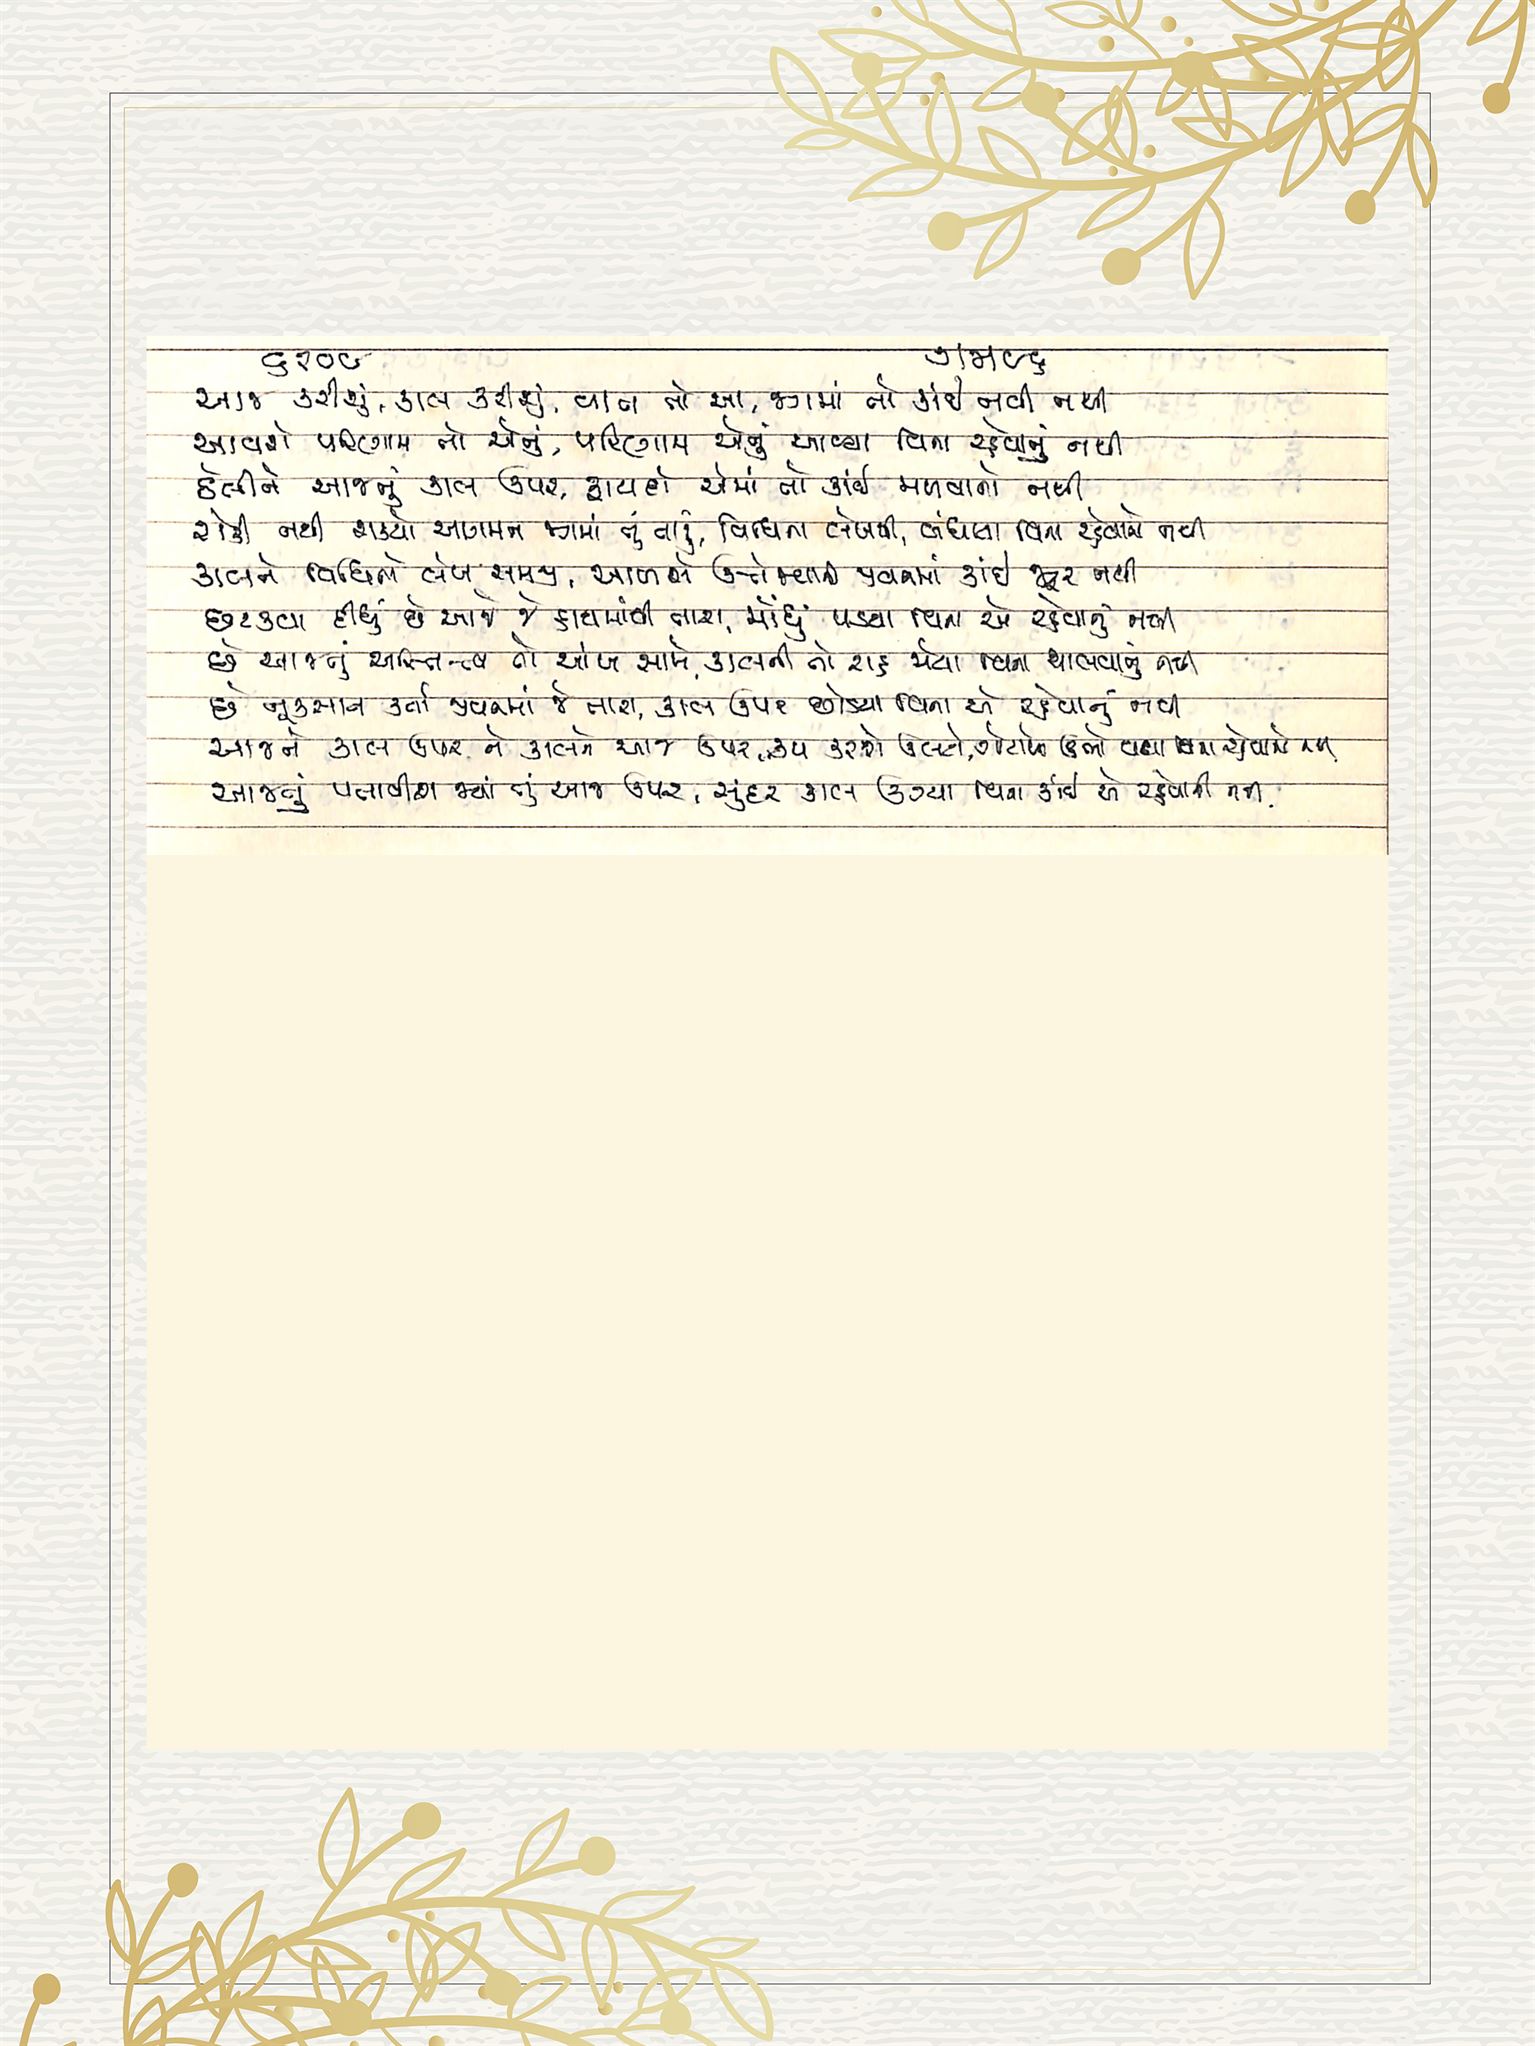 ૬૨૦૯
આજ કરીશું, કાલ કરીશું, વાત તો આ, જગમાં તો કાંઈ નવી નથી
આવશે પરિણામ તો એનું, પરિણામ એનું આવ્યા વિના રહેવાનું નથી
ઠેલીને આજનું કાલ ઉપર, ફાયદો એમાં તો કાંઈ મળવાનો નથી
રોકી નથી શક્યો આગમન જગમાં તું તારું, વિધિના લેખથી, બંધાયા વિના રહેવાનો નથી
કાલને વિધિનો લેખ સમજી, આળસને ઉત્તેજવાની જીવનમાં કાંઈ જરૂર નથી
છટકવા દીધું છે આજે જે હાથમાંથી તારા, મોંઘું પડયા વિના એ રહેવાનું નથી
છે આજનું અસ્તિત્વ તો આંખ સામે, કાલની તો રાહ જોયા વિના ચાલવાનું નથી
છે નૂકસાન કર્તા જીવનમાં જે તારા, કાલ ઉપર છોડયા વિના એ રહેવાનું નથી
આજને કાલ ઉપર ને કાલને આજ ઉપર, કરશો ઉલટો, ગોટાળો ઉભો થયા વિના રહેવાનો નથી
આજનું પતાવીશ જ્યાં તું આજ ઉપર, સુંદર કાલ ઉગ્યા વિના કાંઈ એ રહેવાની નથી.